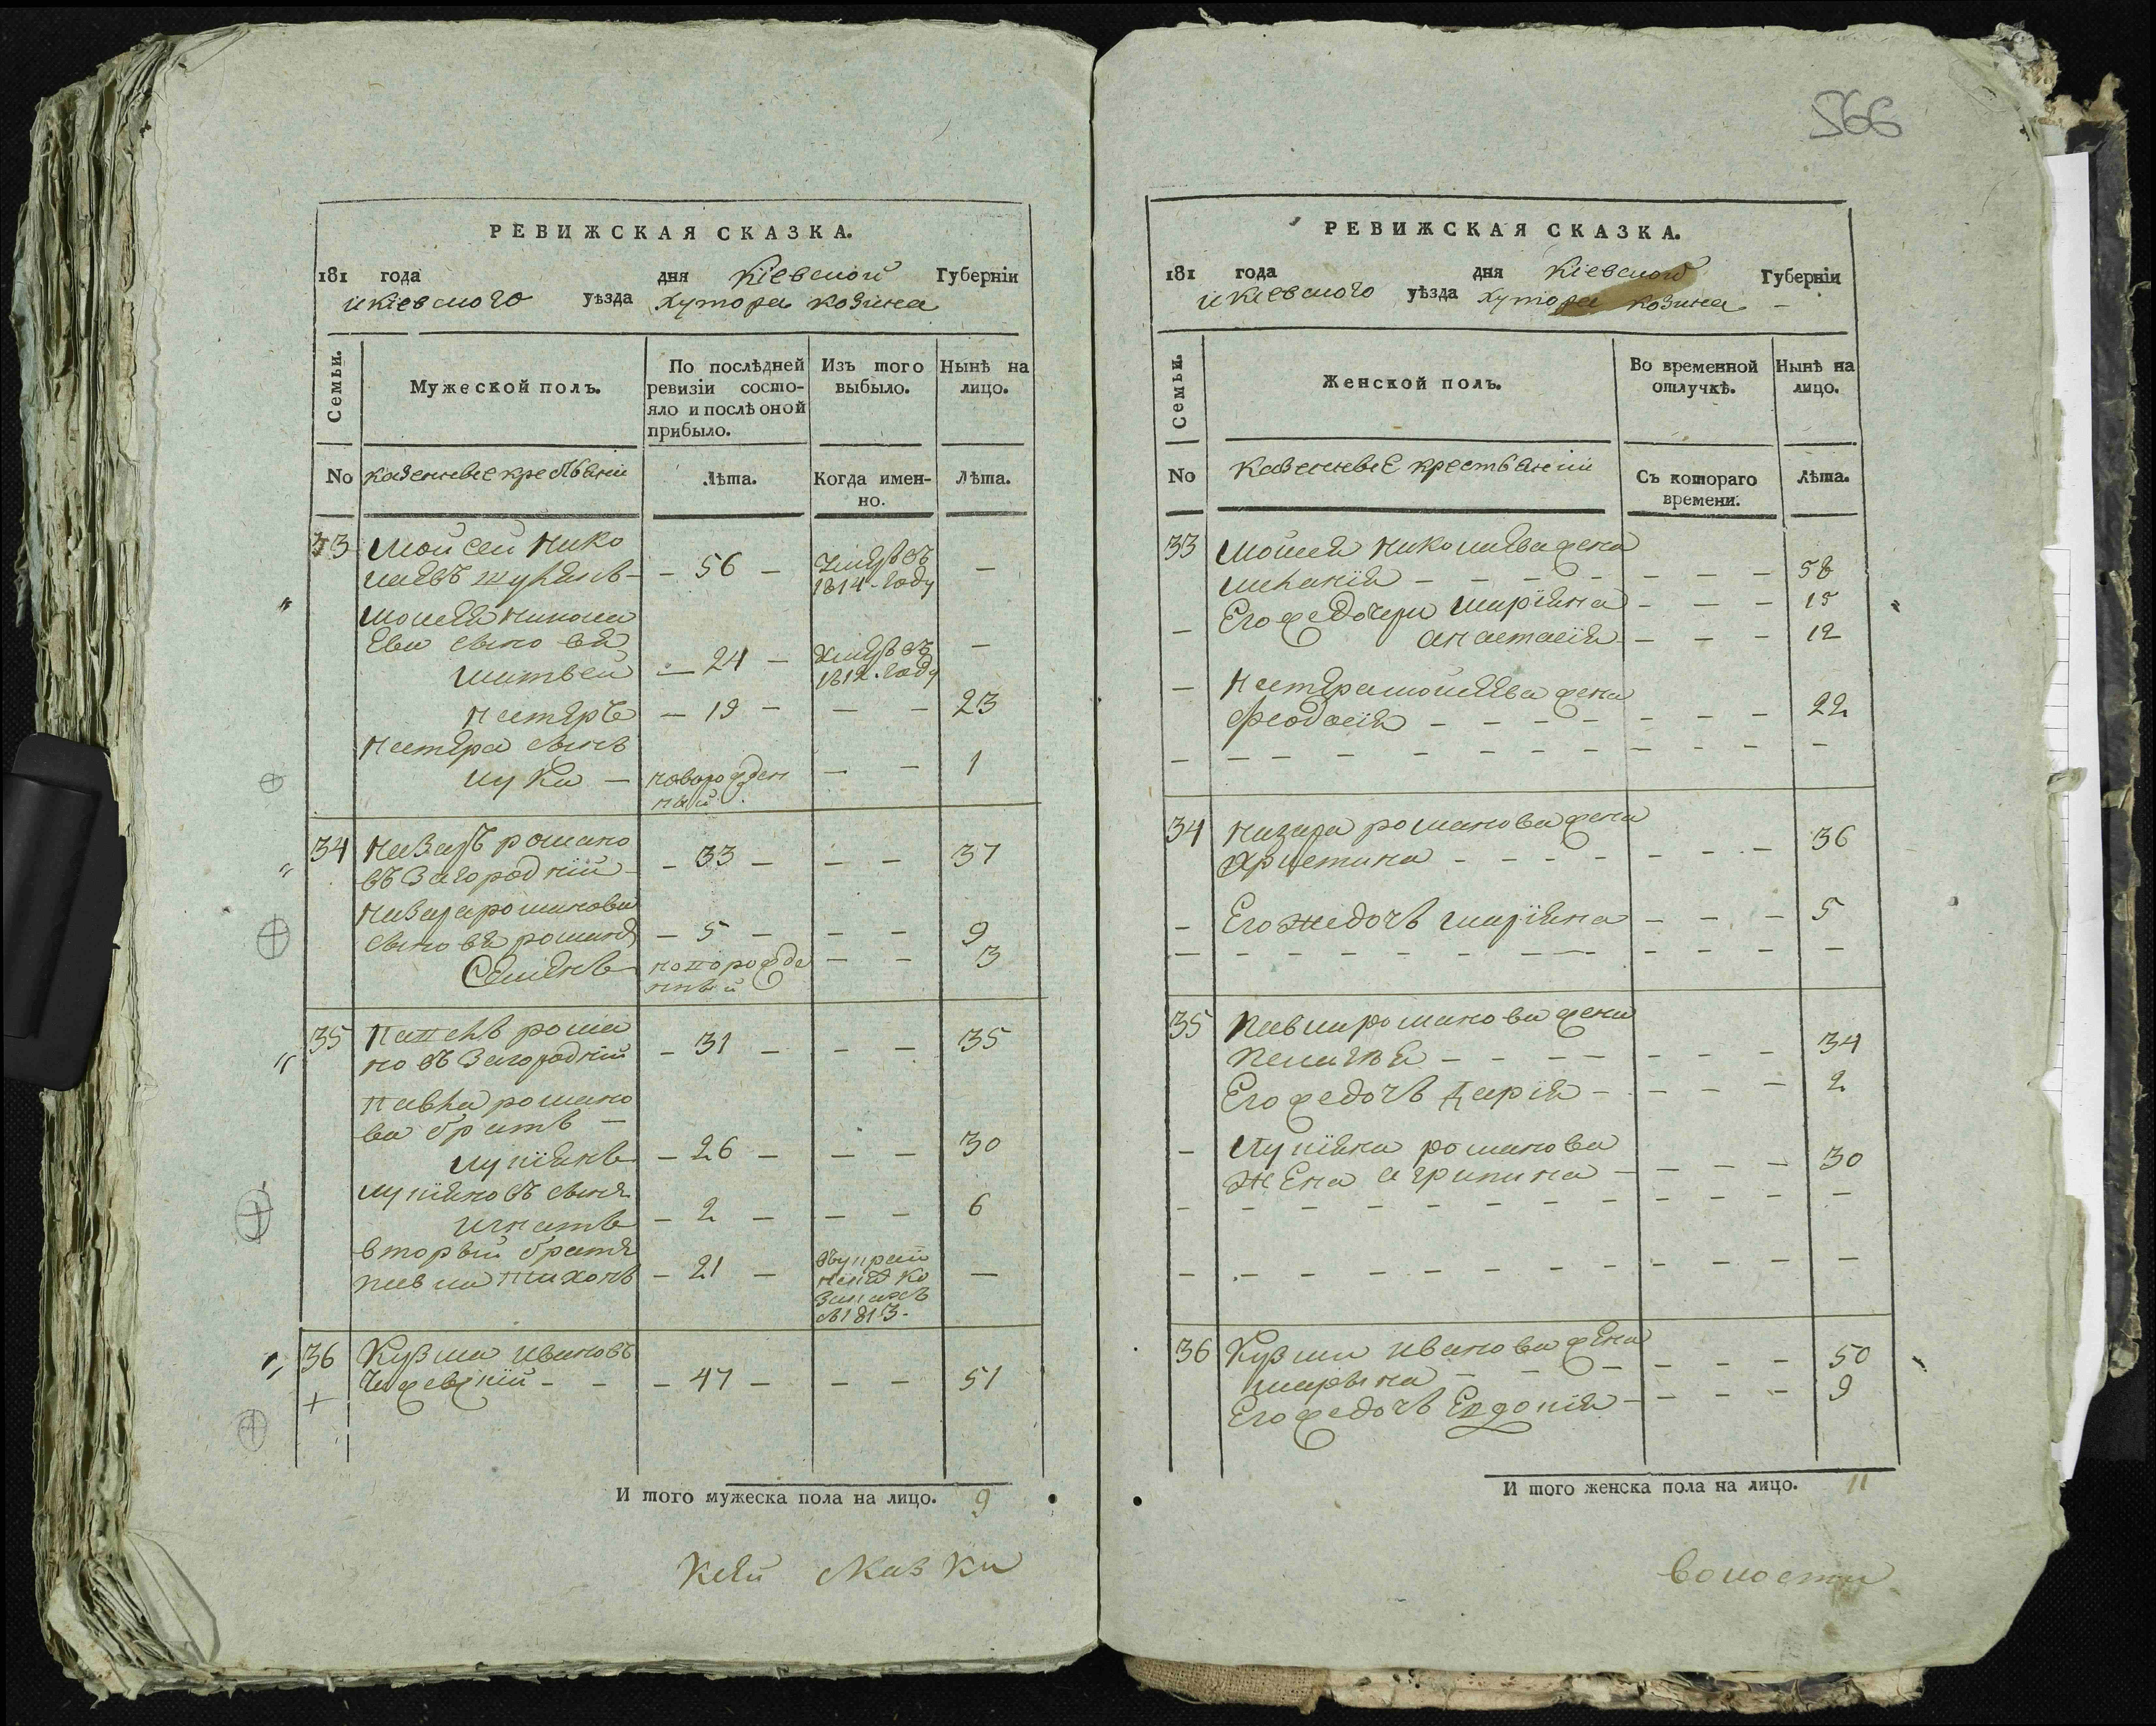 РЕВИЖСКАЯ СКАЗКА.
181 года дня Кіевской Губерніи
и Кіевского уѣзда хутора козина
Семьи.
Мужеской полъ.
По послѣдней ревизіи состо-
яло и послѣ оной
прибыло.
Изъ того
выбыло.
Нынѣ на
лицо.
No казенные крестьяни
Лѣта.
Когда имен-
но.
Лѣта.
33 Мойсей Нико
лаевъ - 56 - Умре въ
1814. году -
Моисея Никола
ева сынове
Матвей - 24 - Умре въ
1812. году -
Нестеръ - 19 - - - 23
Нестера сынъ
Лука - новорожден
ный - - 1
34 Назаръ романо
въ Загородній - 33 - - - 37
Назара романова
сынове романъ - 5 - - - 9
Семенъ новорожде
нный - - 3
35 Павелъ рома
новъ Загородній - 31 - - - 35
Павла романо
ва братъ -
Лукіянъ - 26 - - - 30
Лукіяновъ сынъ
Игнатъ - 2 - - - 6
вторый братъ
Павла Тихонъ - 21 - въ украй
нскихъ ко
закахъ
с 1813. -
36 Кузма Ивановъ
- - - 47 - - - 51
И того мужеска пола на лицо. 9
Кей сказки
566
РЕВИЖСКАЯ СКАЗКА.
181 года дня Кіевской Губерніи
и Кіевского уѣзда хутора козина -
Семьи.
Женской полъ.
Во временной
отлучкѣ.
Нынѣ на
лицо.
No Казенные крестьяніи
Съ котораго
времени.
Лѣта.
33 Моисея Николаева жена
Меланія - - - - - - - - 58
Его же дочери Маріяна - - - 15
- Анастасія - - - 12
- Нестера моисеева жена
Феодосія - - - - - - - - 22
34 Назара романова жена
Христина - - - - - - - - 36
- Его же дочь Маріяна - - - 5
35 Павла романова жена
Пелагея - - - - - - - - 34
Его же дочь Дарія - - - - 2
- Лукіяна романова
жена агрипина - - - - 30
36 Кузми Иванова жена
Марина - - - - - - 50
Его же дочь Евдокія - - - - 9
И того женска пола на лицо. 11
волости